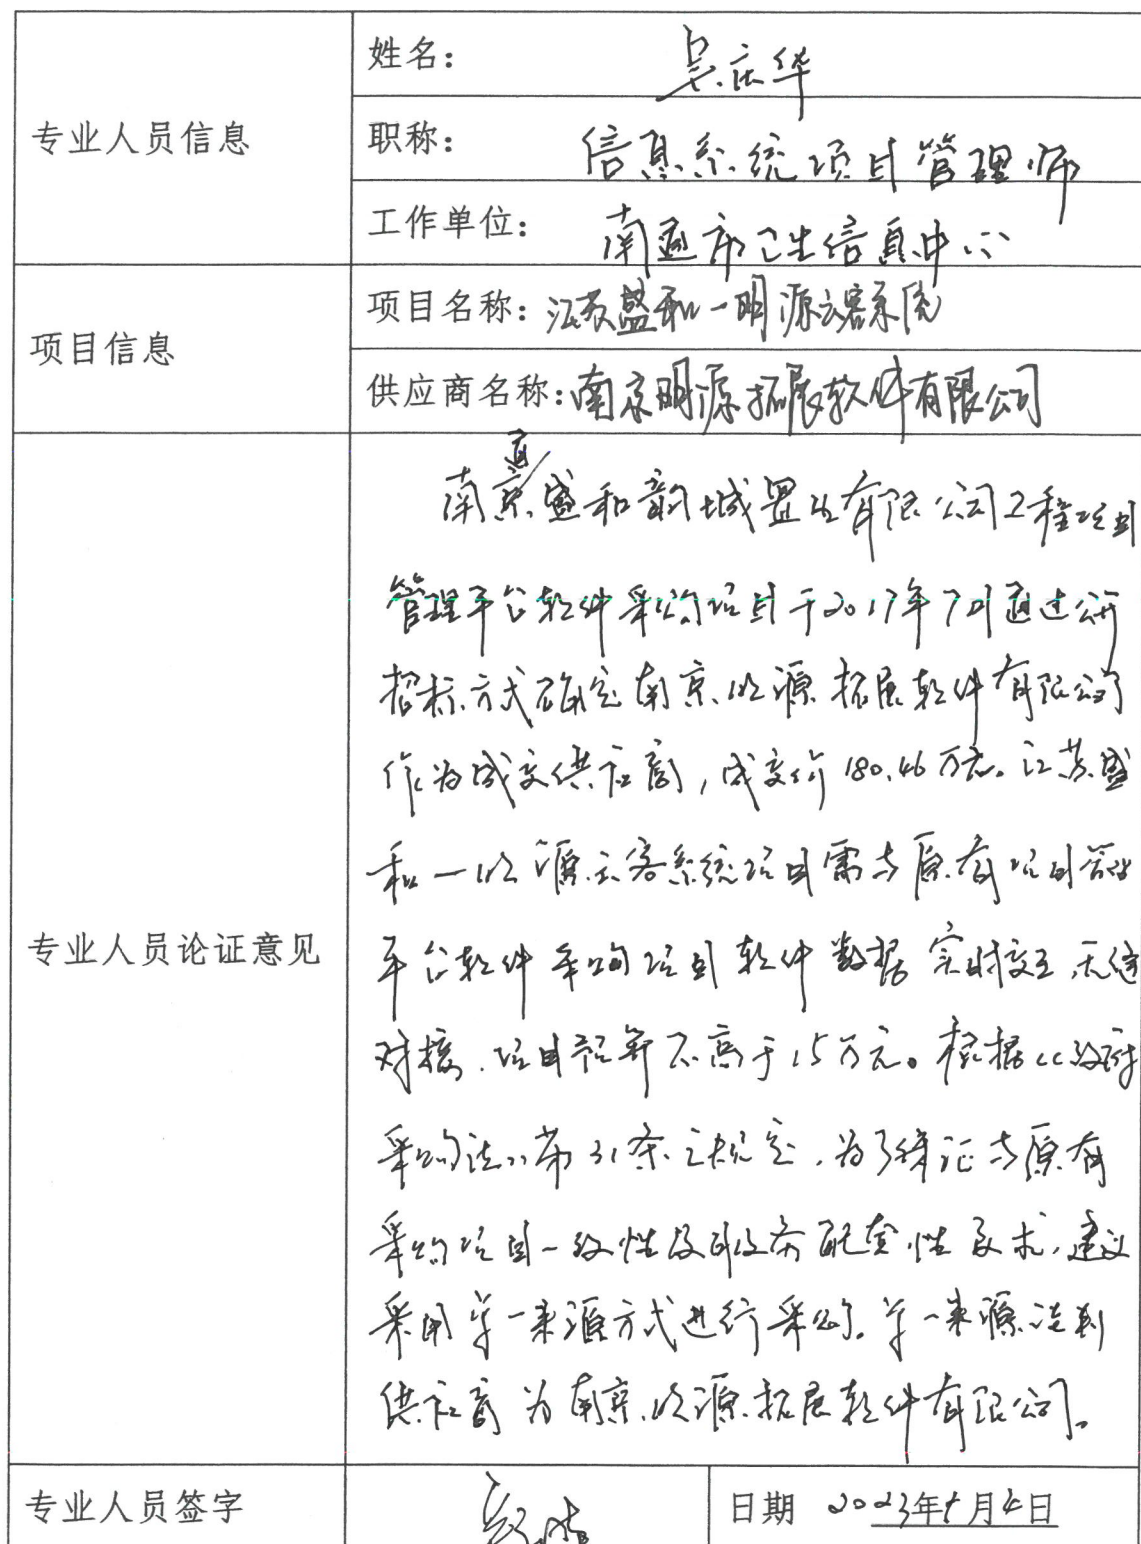 专业人员信息
姓名：吴庆华
职称：信息系统项目管理师
工作单位：南通市卫生信息中心
项目信息
项目名称：江苏盛和一明源云客系统
供应商名称：南京明源拓展软件有限公司
专业人员论证意见
南通盛和韵城置业有限公司工程项目
管理平台软件采购项目于2017年7月通过公开
招标方式确定南京明源拓展软件有限公司
作为成交供应商，成交价180.46万元。江苏盛
和一明源云客系统项目需与原有项目管理
平台软件采购项目软件数据实时交互，无缝
对接，项目预算不高于15万元。根据《政府
采购法》第31条之规定，为了保证与原有
采购项目一致性及服务配套性要求，建议
采用单一来源方式进行采购。单一来源谈判
供应商为南京明源拓展软件有限公司。
专业人员签字
日期 2023年 月 日